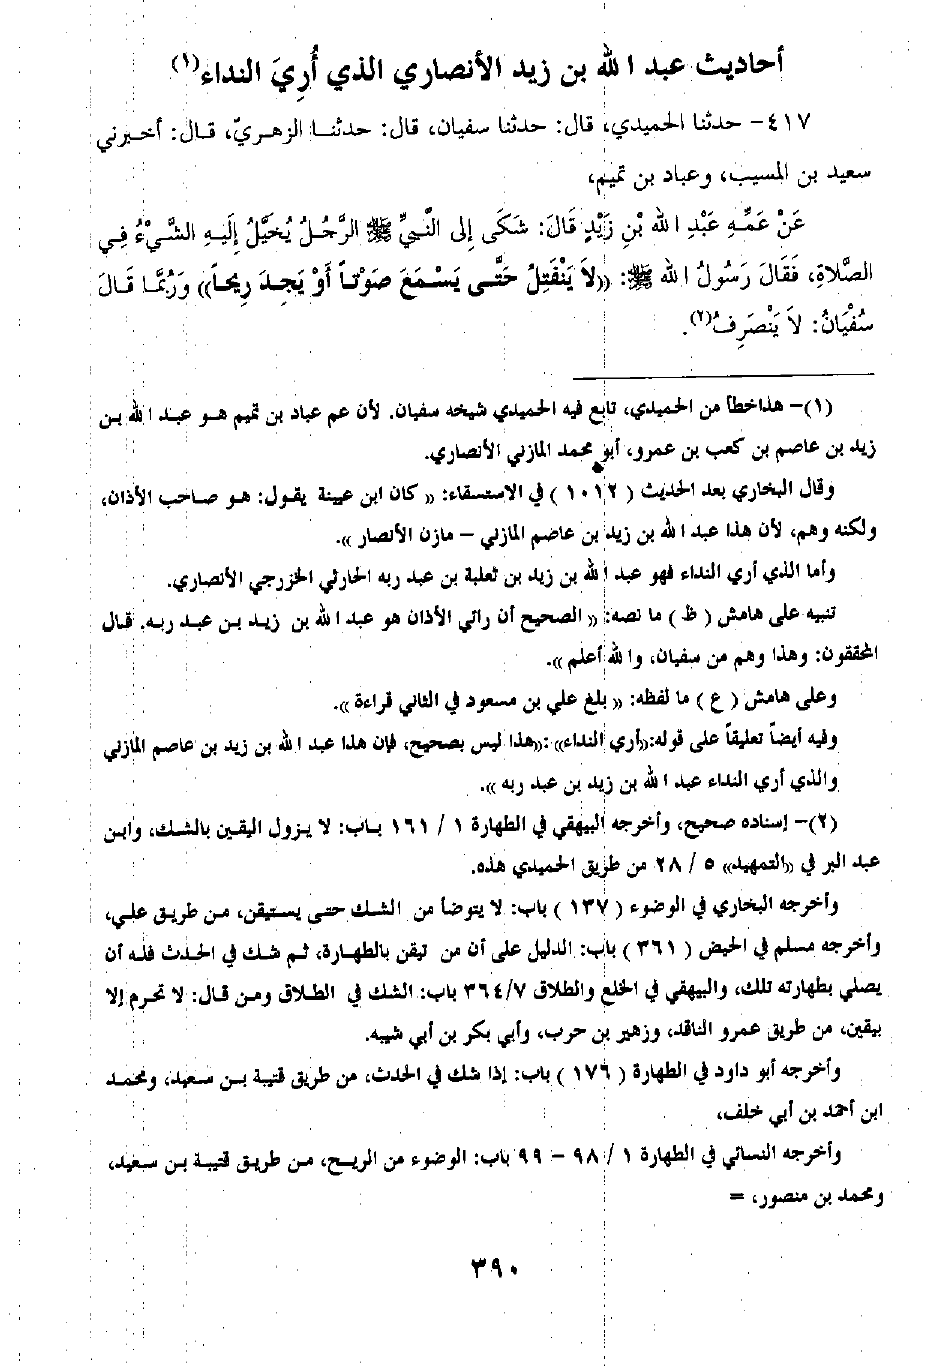 أحاديث عبد الله بن زيد الأنصاري الذي أُرِيَ النداء(١)
٤١٧- حدثنا الحميدي، قال: حدثنا سفيان، قال: حدثنا الزهريّ، قال: أخبرني
سعيد بن المسيب، وعباد بن تميم،
عَنْ عَمِّهِ عَبْدِ اللهِ بْنِ زَيْدٍ قَالَ: شَكَى إِلى النَّبِيِّ ﷺ الرَّجُلُ يُخَيَّلُ إِلَيهِ الشَّيْءُ فِي
الصَّلاَةِ، فَقَالَ رَسُولُ الله ﷺ: ((لاَ يَنْفَتِلُ حَتَّى يَسْمَعَ صَوْتاً أَوْ يَجِدَ رِيحاً)) وَرُبَّمَا قَالَ
سُفْيَانُ: لاَ يَنْصَرِفُ(٢).
(١)- هذا خطأ من الحميدي، تابع فيه الحميدي شيخه سفيان. لأن عم عباد بن تميم هو عبد الله بن
زيد بن عاصم بن كعب بن عمرو، أبو محمد المازني الأنصاري.
وقال البخاري بعد الحديث ( ١٠١٢ ) في الاستسقاء: « كان ابن عيينة يقول: هو صاحب الأذان،
ولكنه وهم، لأن هذا عبد الله بن زيد بن عاصم المازني – مازن الأنصار ».
وأما الذي أري النداء فهو عبد الله بن زيد بن ثعلبة بن عبد ربه الحارثي الخزرجي الأنصاري.
تنبيه على هامش ( ظ ) ما نصه: « الصحيح أن رائي الأذان هو عبد الله بن زيد بن عبد ربه. قال
المحققون: وهذا وهم من سفيان، والله أعلم ».
وعلى هامش ( ع ) ما لفظه: « بلغ علي بن مسعود في الثاني قراءة ».
وفيه أيضاً تعليقاً على قوله:«أري النداء» :«هذا ليس بصحيح، فإن هذا عبد الله بن زيد بن عاصم المازني
والذي أري النداء عبد الله بن زيد بن عبد ربه ».
(٢)- إسناده صحيح، وأخرجه البيهقي في الطهارة ١ / ١٦١ باب: لا يزول اليقين بالشك، وابن
عبد البر في «التمهيد» ٥ / ٢٨ من طريق الحميدي هذه.
وأخرجه البخاري في الوضوء ( ١٣٧ ) باب: لا يتوضأ من الشك حتى يستيقن، من طريق علي،
وأخرجه مسلم في الحيض ( ٣٦١ ) باب: الدليل على أن من تيقن بالطهارة، ثم شك في الحدث فله أن
يصلي بطهارته تلك، والبيهقي في الخلع والطلاق ٣٦٤/٧ باب: الشك في الطلاق ومن قال: لا تحرم إلا
بيقين، من طريق عمرو الناقد، وزهير بن حرب، وأبي بكر بن أبي شيبه.
وأخرجه أبو داود في الطهارة ( ١٧٦ ) باب: إذا شك في الحدث، من طريق قتيبة بن سعيد، ومحمد
ابن أحمد بن أبي خلف،
وأخرجه النسائي في الطهارة ١ / ٩٨ – ٩٩ باب: الوضوء من الريح، من طريق قتيبة بن سعيد،
ومحمد بن منصور، =
٣٩٠